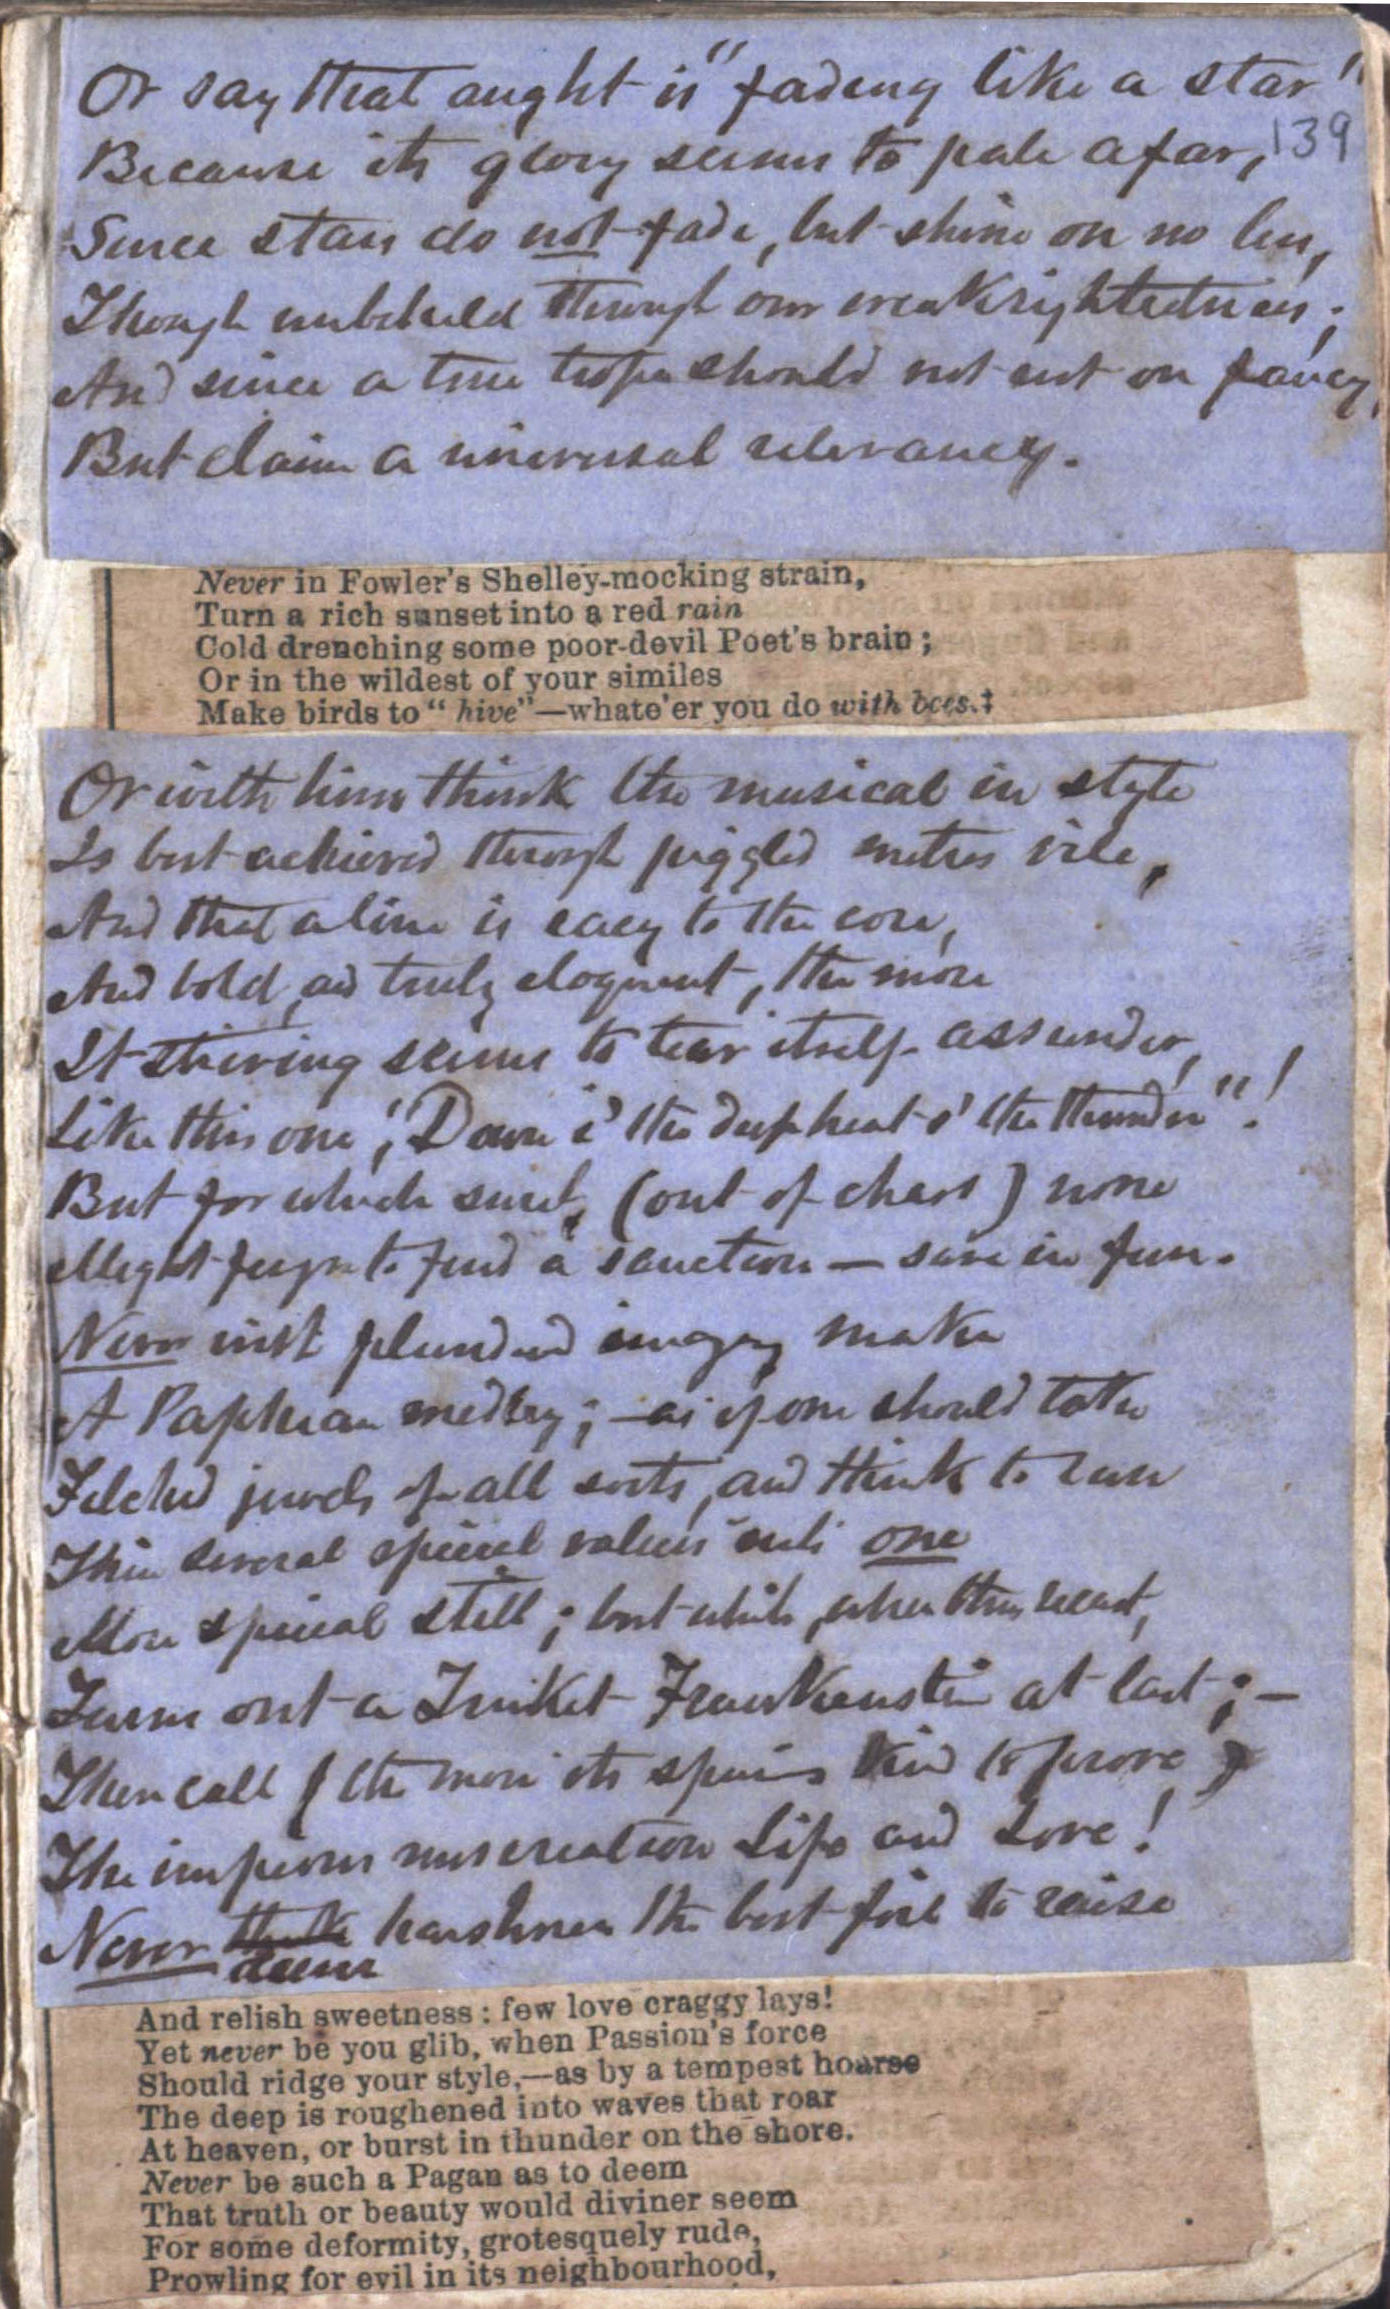 Or say that aught is "fading like a star"
139
Because its glory seems to pale afar,
Since stars do not fade, but shine on no less,
Though unbeheld through our weaksightedness;
And since a true trope should not rest on fancy,
But claim a universal relevancy.
Never in Fowler's Shelley-mocking strain,
Turn a rich sunset into a red rain
Cold drenching some poor-devil Poet's brain;
Or in the wildest of your similes
Make birds to "hive"—whate'er you do with bees.‡
Or with him think the musical in style
Is best achieved through jiggled metres vile,
And that a line is easy to the core,
And bold and truly eloquent, the more
It striving seems to tear itself assunder,
Like this one, "Down i' the deep heat o' the thunder"!
But for which such, (out of chaos) none
Might feign to find a sanction — save in fun.
Never with plundered imagery make
A Paphian medley; — as if one should take
Filched jewels of all sorts, and think to
Their several special values into one
More special still; but which, when thus recast,
Turns out a Trinket Frankenstein at last; —
Then call (the more its spurious kind to prove)
The impious miscreation Life and Love!
Never think deem harshness the best foil to raise
And relish sweetness: few love craggy lays!
Yet never be you glib, when Passion's force
Should ridge your style,—as by a tempest hoarse
The deep is roughened into waves that roar
At heaven, or burst in thunder on the shore.
Never be such a Pagan as to deem
That truth or beauty would diviner seem
For some deformity, grotesquely rude,
Prowling for evil in its neighbourhood,